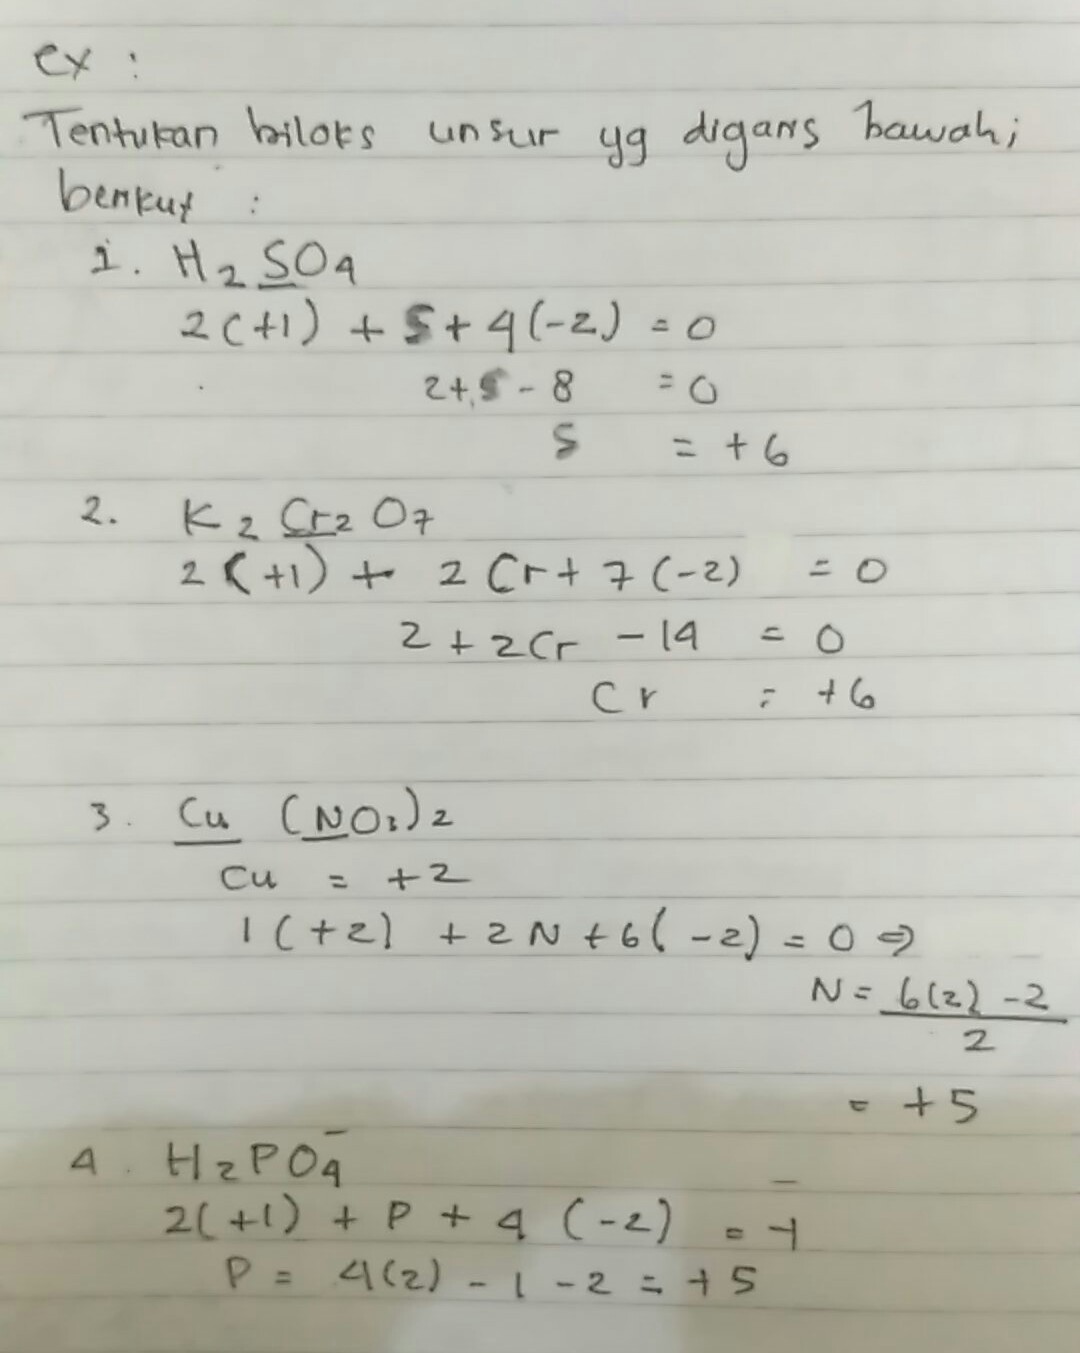 ex :
Tentukan biloks unsur yg digaris bawah;
berikut :
1. H2SO4
2(+1) + S + 4(-2) = 0
2 + S - 8 = 0
S = +6
2. K2Cr2O7
2(+1) + 2Cr + 7(-2) = 0
2 + 2Cr - 14 = 0
Cr = +6
3. Cu (NO3)2
Cu = +2
1(+2) + 2N + 6(-2) = 0 ⇒
N = 6(2) - 2
2
= +5
4. H2PO4⁻
2(+1) + P + 4(-2) = -1
P = 4(2) - 1 - 2 = +5